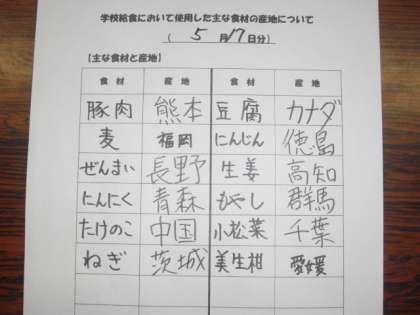 学校給食において使用した主な食材の産地について
( 5 月 17 日分)
【主な食材と産地】
食材 産地 食材 産地
豚肉 熊本 豆腐 カナダ
麦 福岡 にんじん 徳島
ぜんまい 長野 生姜 高知
にんにく 青森 もやし 群馬
たけのこ 中国 小松菜 千葉
ねぎ 茨城 美生柑 愛媛